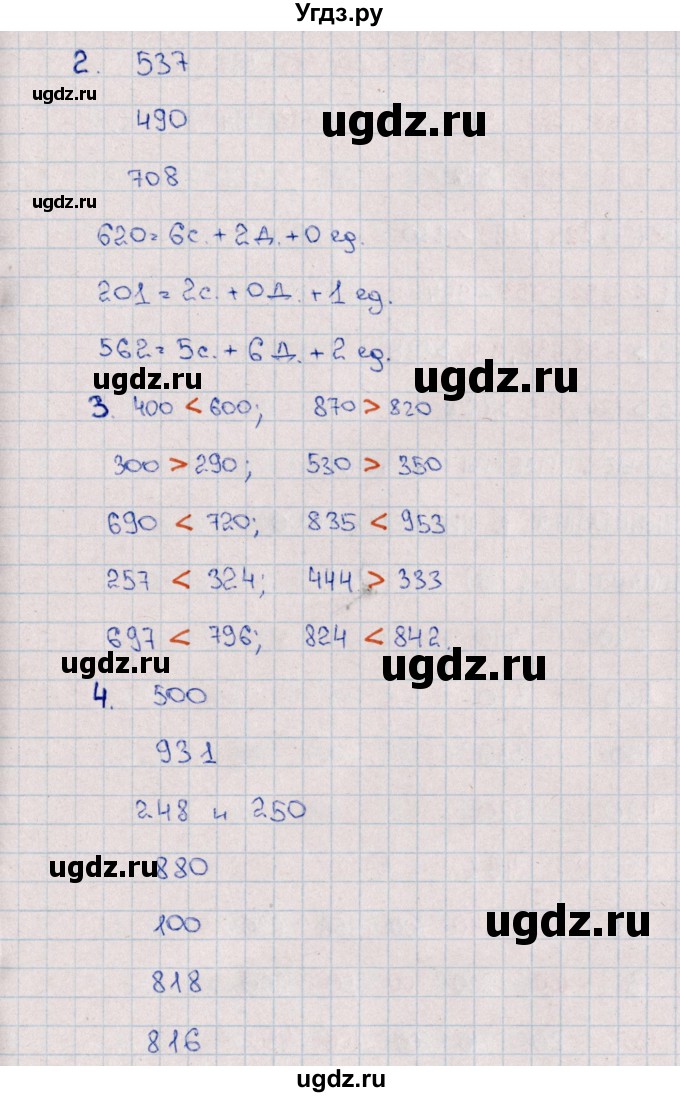 Угдз.ру
2. 537
ugdz.ru
490
ugdz.ru
708
ugdz.ru
620 = 6с. + 2д. + 0 ед.
201 = 2с. + 0д. + 1 ед.
562 = 5с. + 6д. + 2 ед.
ugdz.ru
ugdz.ru
3. 400 < 600; 870 > 820
300 > 290; 530 > 350
690 < 720; 835 < 953
257 < 324; 444 > 333
697 < 796; 824 < 842.
ugdz.ru
ugdz.ru
4. 500
931
248 и 250
ugdz.ru
880
100
ugdz.ru
818
816
ugdz.ru